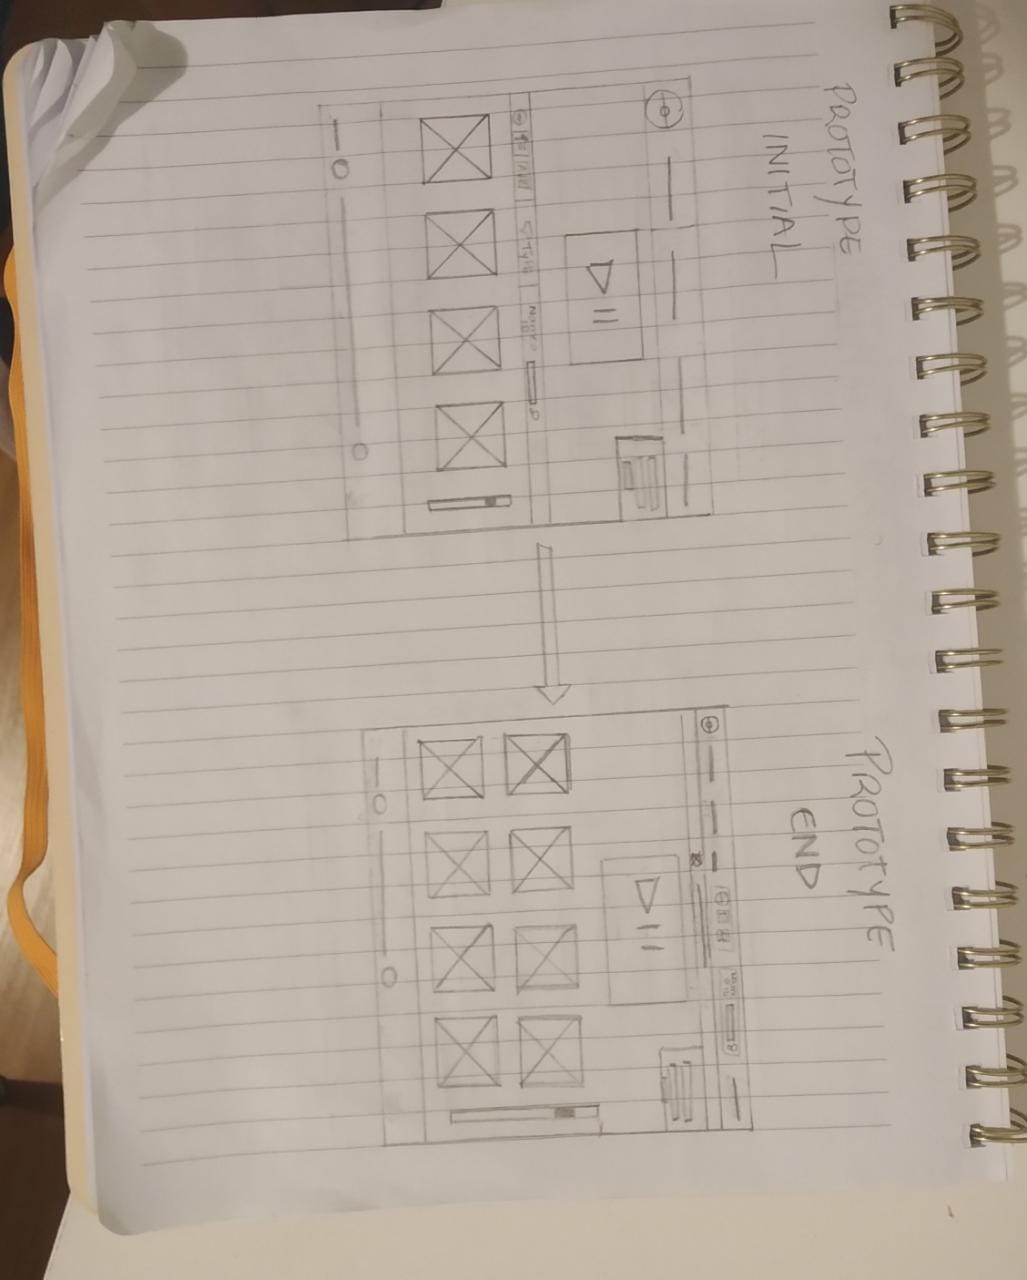 PROTOTYPE
INITIAL
PROTOTYPE
END